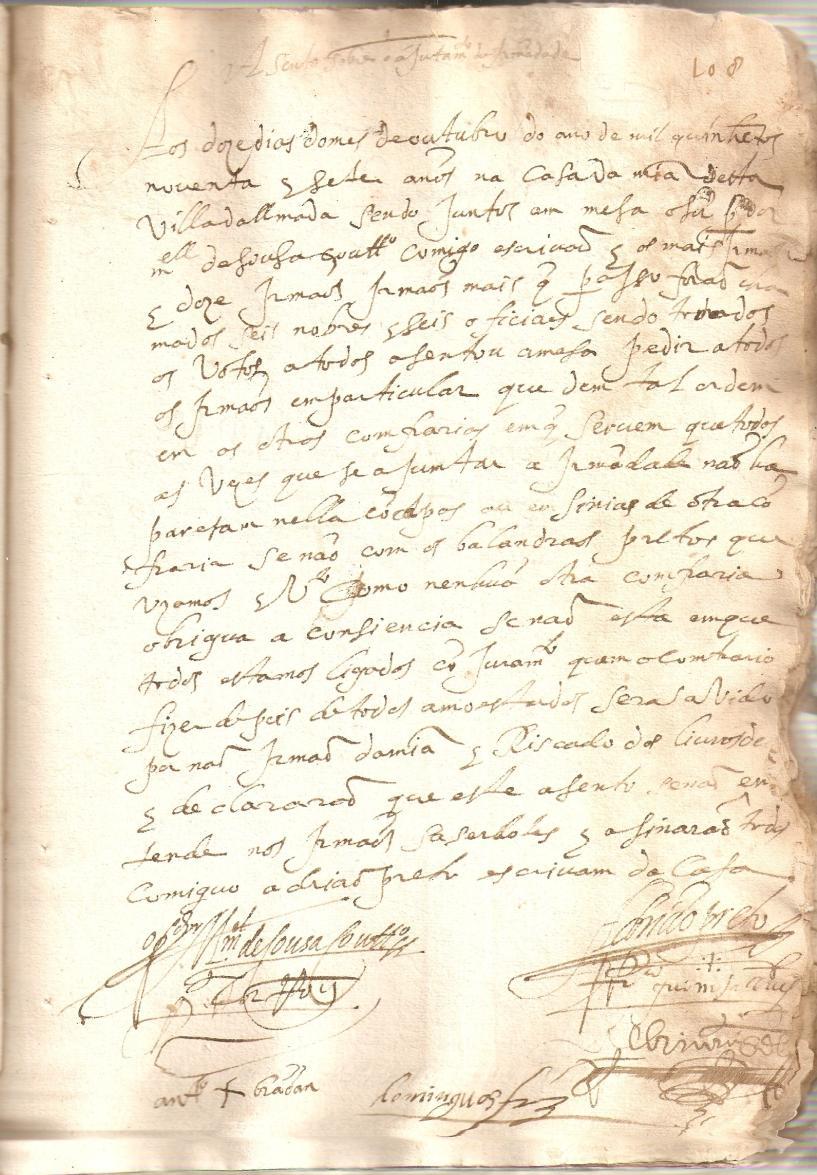 Asento sobre o ajutamto da Irmandade
108
Aos doze dias do mes de outubro do ano de mil quinhetos
noventa e sete anos na Casa da mia desta
Villa dallmada sendo Juntos em mesa o sor pdor
mell de sousa coutto comigo escrivão e os mais Irmãos
e doze Irmãos Irmãos mais q pa Isso forão cha
mados seis nobres e seis oficiaes sendo tomados
os Votos a todos asentou a mesa pedir a todos
os Irmãos em particular que dem tal ordem
em os otros comfrarias em q servem que todos
as Vezes que se a Juntar a Irmãdade não ha
paresam nella cõ opas ou em sinias de otra cõ
fraria se não com os balandraos pretos que
uzamos e como nenhuã otra comfraria
obrigua a consiencia senão esta em que
todos estamos ligados cõ Juramto quem o comtrario
fizer depois de todos amoestados sera avido
pa não Irmão da mia e Riscado dos livros de
e declararão que este asento senão en
tende nos Irmãos saserdotes e asinarão todos
Comiguo adrião preto escrivam da Casa
o pdor Mel de Sousa Coutto
adrião preto
anto + bradan
domingos frz